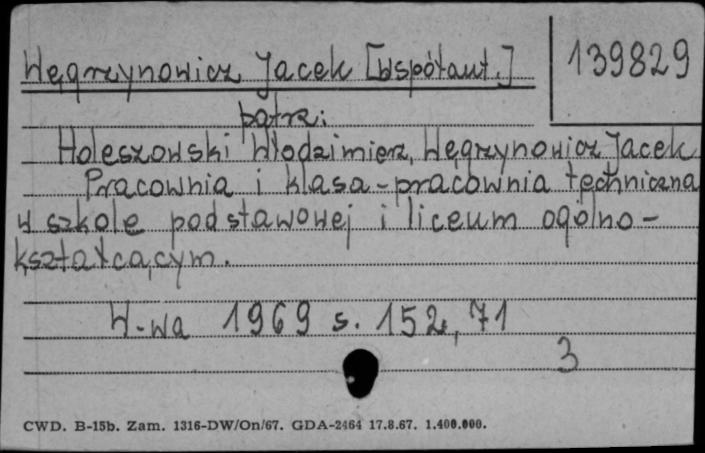 Węgrzynowicz Jacek [Współaut.]
139829
patrz:
Hołeszowski Włodzimierz, Węgrzynowicz Jacek
Pracownia i klasa-pracownia techniczna
w szkole podstawowej i liceum ogólno-
kształcącym.
W-wa 1969 s. 152, 71
3
CWD. B-15b. Zam. 1316-DW/On/67. GDA-2464 17.8.67. 1.400.000.